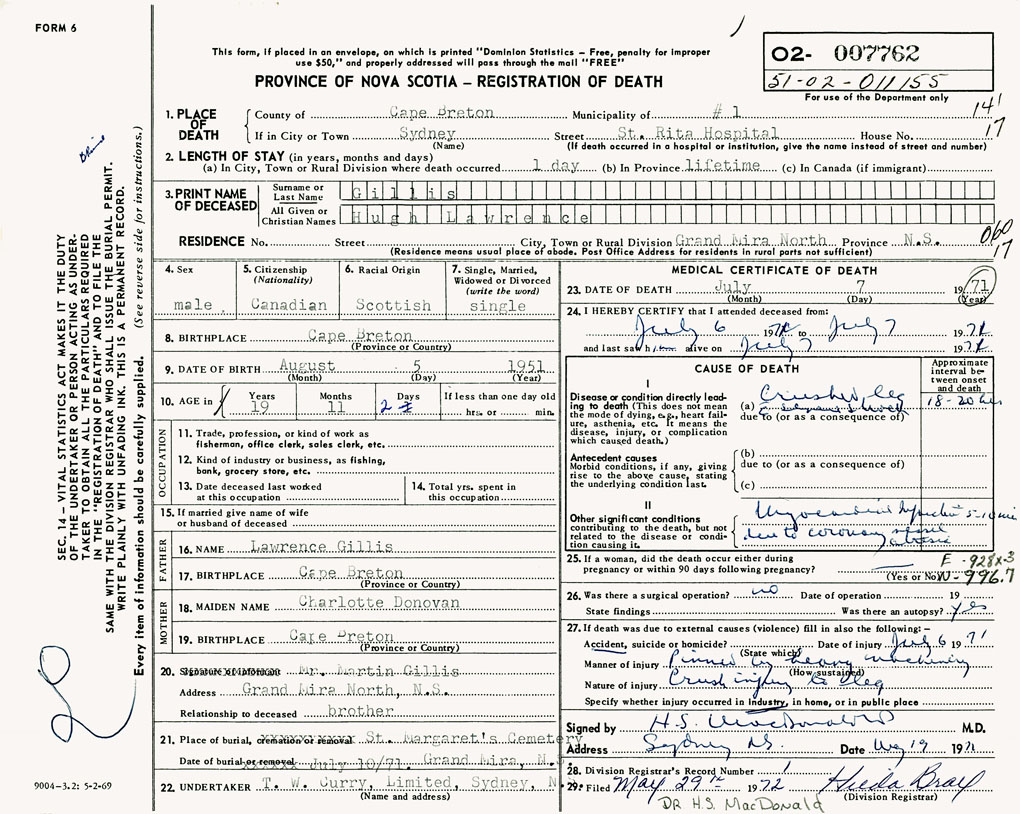 FORM 6
This form, if placed in an envelope, on which is printed "Dominion Statistics – Free, penalty for improper
use $50," and properly addressed will pass through the mail "FREE"
PROVINCE OF NOVA SCOTIA – REGISTRATION OF DEATH
02- 007762
51-02-011155
For use of the Department only
141
17
1. PLACE OF DEATH
County of Cape Breton Municipality of # 1
If in City or Town Sydney Street St. Rita Hospital House No.
(Name) (If death occurred in a hospital or institution, give the name instead of street and number)
2. LENGTH OF STAY (in years, months and days)
(a) In City, Town or Rural Division where death occurred 1 day (b) In Province lifetime (c) In Canada (if immigrant)
3. PRINT NAME OF DECEASED
Surname or Last Name Gillis
All Given or Christian Names Hugh Lawrence
RESIDENCE No. Street City, Town or Rural Division Grand Mira North Province N.S.
(Residence means usual place of abode. Post Office Address for residents in rural parts not sufficient)
060
17
4. Sex
male
5. Citizenship
(Nationality)
Canadian
6. Racial Origin
Scottish
7. Single, Married,
Widowed or Divorced
(write the word)
single
8. BIRTHPLACE Cape Breton
(Province or Country)
9. DATE OF BIRTH August 5 1951
(Month) (Day) (Year)
10. AGE in Years 19 Months 11 Days 2 If less than one day old
hrs. or min.
OCCUPATION
11. Trade, profession, or kind of work as
fisherman, office clerk, sales clerk, etc.
12. Kind of industry or business, as fishing,
bank, grocery store, etc.
13. Date deceased last worked
at this occupation
14. Total yrs. spent in
this occupation
15. If married give name of wife
or husband of deceased
FATHER
16. NAME Lawrence Gillis
17. BIRTHPLACE Cape Breton
(Province or Country)
MOTHER
18. MAIDEN NAME Charlotte Donovan
19. BIRTHPLACE Cape Breton
(Province or Country)
20. Signature of informant Mr. Martin Gillis
Address Grand Mira North, N.S.
Relationship to deceased brother
21. Place of burial, cremation or removal St. Margaret's Cemetery
Date of burial or removal July 10/71. Grand Mira, N.S.
22. UNDERTAKER T. W. Curry, Limited, Sydney, N.
(Name and address)
MEDICAL CERTIFICATE OF DEATH
23. DATE OF DEATH July 7 1971
(Month) (Day) (Year)
24. I HEREBY CERTIFY that I attended deceased from:
July 6 1971 to July 7 1971
and last saw him alive on July 7 1971
CAUSE OF DEATH
Approximate
interval be-
tween onset
and death
I
Disease or condition directly lead-
ing to death (This does not
mean the mode of dying, e.g., heart fail-
ure, asthenia, etc. It means the
disease, injury, or complication
which caused death.)
(a) Crushed leg
18-20 hrs
due to (or as a consequence of)
Antecedent causes
Morbid conditions, if any, giving
rise to the above cause, stating
the underlying condition last.
(b)
due to (or as a consequence of)
(c)
II
Other significant conditions
contributing to the death, but not
related to the disease or condi-
tion causing it.
Myocardial 5-10 min
due to coronary
25. If a woman, did the death occur either during
pregnancy or within 90 days following pregnancy?
(Yes or No)
E-928x-3
N-996.7
26. Was there a surgical operation? no Date of operation 19
State findings Was there an autopsy? Yes
27. If death was due to external causes (violence) fill in also the following:–
Accident, suicide or homicide? Date of injury July 6 1971
(State which)
Manner of injury Pinned by heavy machinery
(How sustained)
Nature of injury Crush injury to leg
Specify whether injury occurred in Industry, in home, or in public place
Signed by H.S. MacDonald M.D.
Address Sydney NS. Date Aug 19 1971
28. Division Registrar's Record Number 1
29. Filed May 29th 1972 Hilda Bray
(Division Registrar)
DR H.S. MacDonald
SEC. 14 – VITAL STATISTICS ACT MAKES IT THE DUTY
OF THE UNDERTAKER OR PERSON ACTING AS UNDER-
TAKER TO OBTAIN ALL THE PARTICULARS REQUIRED
IN THE "REGISTRATION OF DEATH" AND TO FILE THE
SAME WITH THE DIVISION REGISTRAR WHO SHALL ISSUE THE BURIAL PERMIT.
WRITE PLAINLY WITH UNFADING INK. THIS IS A PERMANENT RECORD.
Every item of information should be carefully supplied. (See reverse side for instructions.)
9004-3.2: 5-2-69